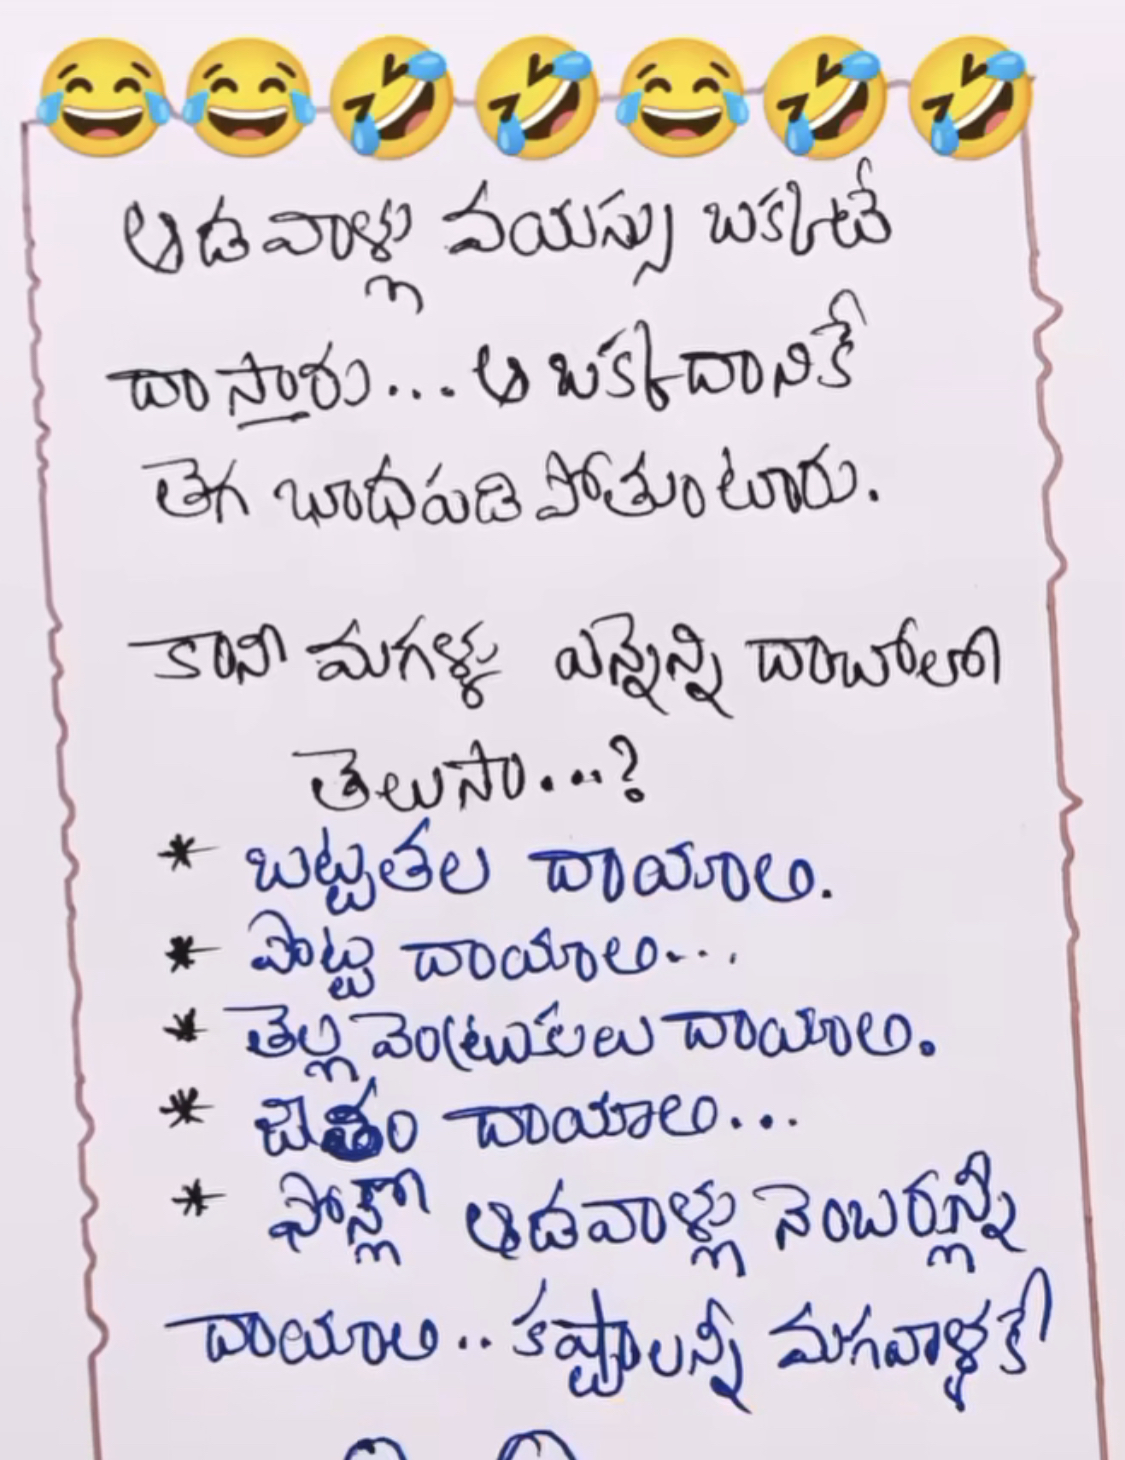 ఆడవాళ్లు వయస్సు ఒక్కటే
దాస్తారు... ఆ ఒక్కదానికే
తెగ బాధపడి పోతుంటారు.
కాని మగళ్ళు ఎన్నెన్ని దాచాలో
తెలుసా...?
* బట్టతల దాయాలి.
* పొట్ట దాయాలి...
* తెల్ల వెంట్రుకలు దాయాలి.
* జీతం దాయాలి...
* ఫోన్లో ఆడవాళ్లు నెంబర్లన్ని
దాయాలి.. కష్టాలన్నీ మగవాళ్ళకే